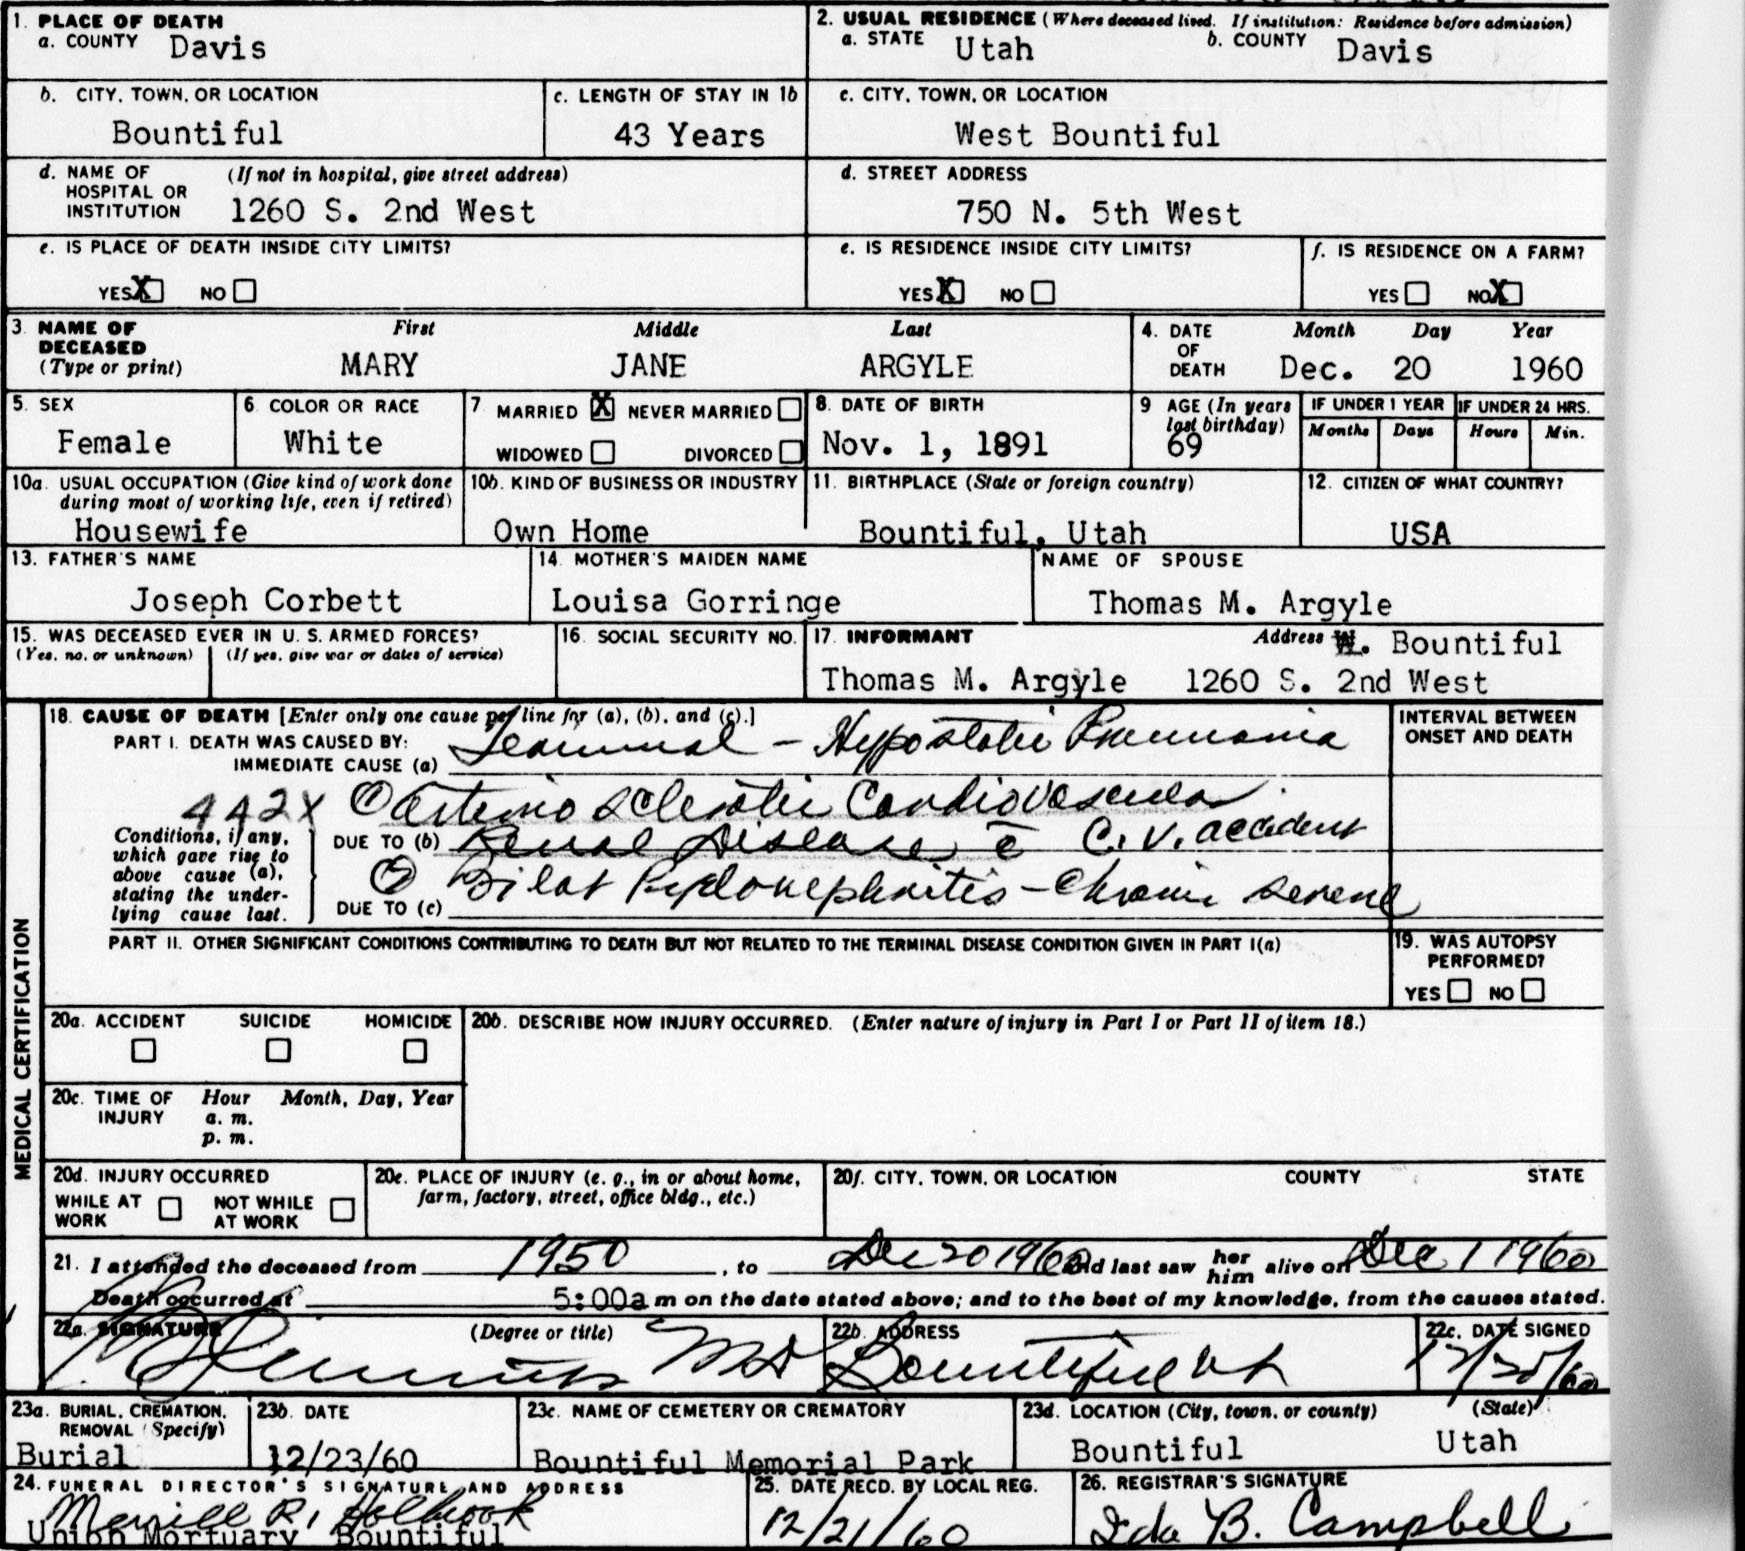 1. PLACE OF DEATH
a. COUNTY Davis
2. USUAL RESIDENCE (Where deceased lived. If institution: Residence before admission)
a. STATE Utah b. COUNTY Davis
b. CITY, TOWN, OR LOCATION
Bountiful
c. LENGTH OF STAY IN 1b
43 Years
c. CITY, TOWN, OR LOCATION
West Bountiful
d. NAME OF HOSPITAL OR INSTITUTION (If not in hospital, give street address)
1260 S. 2nd West
d. STREET ADDRESS
750 N. 5th West
e. IS PLACE OF DEATH INSIDE CITY LIMITS?
YES X NO
e. IS RESIDENCE INSIDE CITY LIMITS?
YES X NO
f. IS RESIDENCE ON A FARM?
YES NO X
3. NAME OF DECEASED (Type or print)
First Middle Last
MARY JANE ARGYLE
4. DATE OF DEATH
Month Day Year
Dec. 20 1960
5. SEX
Female
6. COLOR OR RACE
White
7. MARRIED X NEVER MARRIED
WIDOWED DIVORCED
8. DATE OF BIRTH
Nov. 1, 1891
9 AGE (In years last birthday)
69
IF UNDER 1 YEAR
Months Days
IF UNDER 24 HRS.
Hours Min.
10a. USUAL OCCUPATION (Give kind of work done during most of working life, even if retired)
Housewife
10b. KIND OF BUSINESS OR INDUSTRY
Own Home
11. BIRTHPLACE (State or foreign country)
Bountiful, Utah
12. CITIZEN OF WHAT COUNTRY?
USA
13. FATHER'S NAME
Joseph Corbett
14. MOTHER'S MAIDEN NAME
Louisa Gorringe
NAME OF SPOUSE
Thomas M. Argyle
15. WAS DECEASED EVER IN U. S. ARMED FORCES?
(Yes, no, or unknown) (If yes, give war or dates of service)
16. SOCIAL SECURITY NO.
17. INFORMANT Address W. Bountiful
Thomas M. Argyle 1260 S. 2nd West
MEDICAL CERTIFICATION
18. CAUSE OF DEATH [Enter only one cause per line for (a), (b), and (c).]
PART I. DEATH WAS CAUSED BY:
IMMEDIATE CAUSE (a) Terminal - Hypostatic Pneumonia
INTERVAL BETWEEN ONSET AND DEATH
442X
Conditions, if any, which gave rise to above cause (a), stating the underlying cause last.
① Arterio sclerotic Cardiovascular
DUE TO (b) Renal Disease c̄ C.V. accident
② Bilat Pyelonephritis - Chronic severe
DUE TO (c)
PART II. OTHER SIGNIFICANT CONDITIONS CONTRIBUTING TO DEATH BUT NOT RELATED TO THE TERMINAL DISEASE CONDITION GIVEN IN PART I(a)
19. WAS AUTOPSY PERFORMED?
YES NO
20a. ACCIDENT SUICIDE HOMICIDE
20b. DESCRIBE HOW INJURY OCCURRED. (Enter nature of injury in Part I or Part II of item 18.)
20c. TIME OF INJURY Hour Month, Day, Year
a. m.
p. m.
20d. INJURY OCCURRED
WHILE AT WORK NOT WHILE AT WORK
20e. PLACE OF INJURY (e. g., in or about home, farm, factory, street, office bldg., etc.)
20f. CITY, TOWN, OR LOCATION COUNTY STATE
21. I attended the deceased from 1950, to Dec 20 1960 and last saw her him alive on Dec 1 1960
Death occurred at 5:00a m on the date stated above; and to the best of my knowledge, from the causes stated.
22a. SIGNATURE (Degree or title)
MD
22b. ADDRESS
Bountiful Ut
22c. DATE SIGNED
12/20/60
23a. BURIAL, CREMATION, REMOVAL (Specify)
Burial
23b. DATE
12/23/60
23c. NAME OF CEMETERY OR CREMATORY
Bountiful Memorial Park
23d. LOCATION (City, town, or county) (State)
Bountiful Utah
24. FUNERAL DIRECTOR'S SIGNATURE AND ADDRESS
Merrill R. Holbrook
Union Mortuary Bountiful
25. DATE RECD. BY LOCAL REG.
12/21/60
26. REGISTRAR'S SIGNATURE
Ida B. Campbell